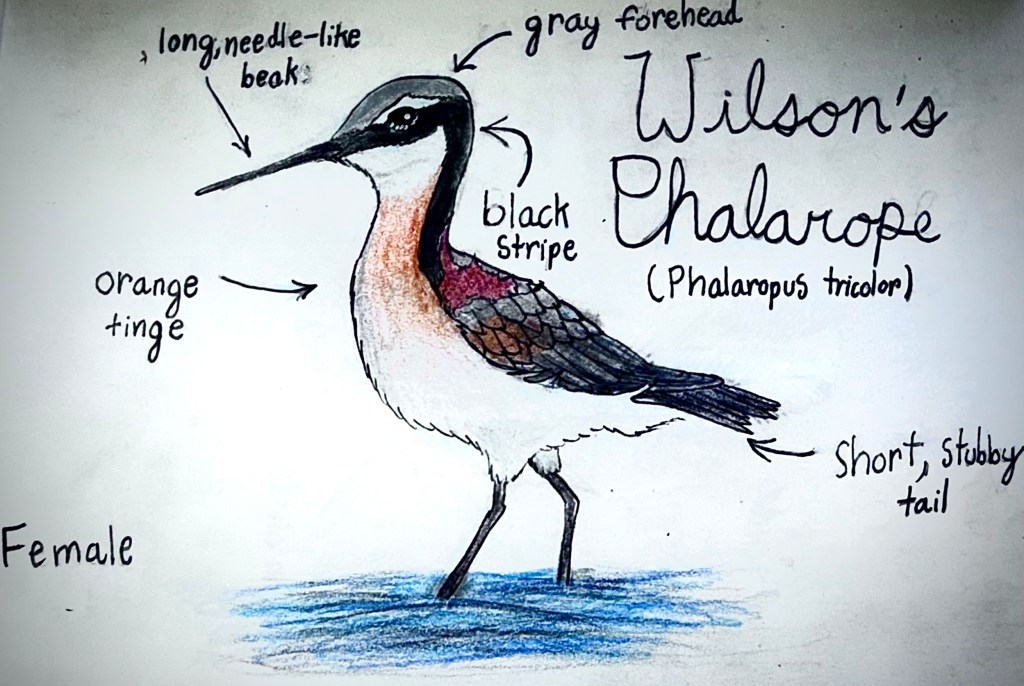 gray forehead
, long, needle-like
beak
Wilson's
Phalarope
(Phalaropus tricolor)
black
stripe
orange
tinge
short, stubby
tail
Female